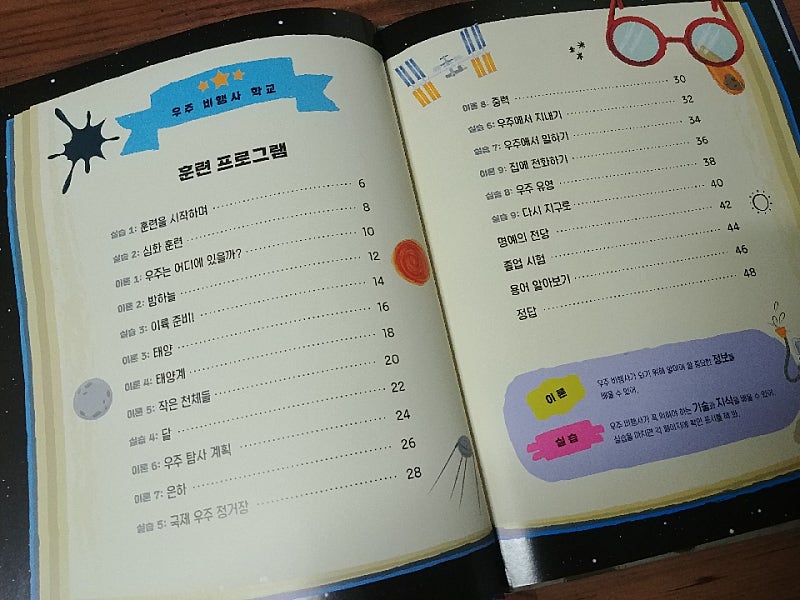 우주 비행사 학교
훈련 프로그램
실습 1: 훈련을 시작하며 6
실습 2: 심화 훈련 8
이론 1: 우주는 어디에 있을까? 10
이론 2: 밤하늘 12
실습 3: 이륙 준비! 14
이론 3: 태양 16
이론 4: 태양계 18
이론 5: 작은 천체들 20
실습 4: 달 22
이론 6: 우주 탐사 계획 24
이론 7: 은하 26
실습 5: 국제 우주 정거장 28
이론 8: 중력 30
실습 6: 우주에서 지내기 32
실습 7: 우주에서 일하기 34
이론 9: 집에 전화하기 36
실습 8: 우주 유영 38
실습 9: 다시 지구로 40
명예의 전당 42
졸업 시험 44
용어 알아보기 46
정답 48
이론
우주 비행사가 되기 위해 알아야 할 중요한 정보를
배울 수 있어.
실습
우주 비행사가 꼭 익혀야 하는 기술과 지식을 배울 수 있어.
실습을 마치면 각 페이지에 확인 표시를 해 봐.